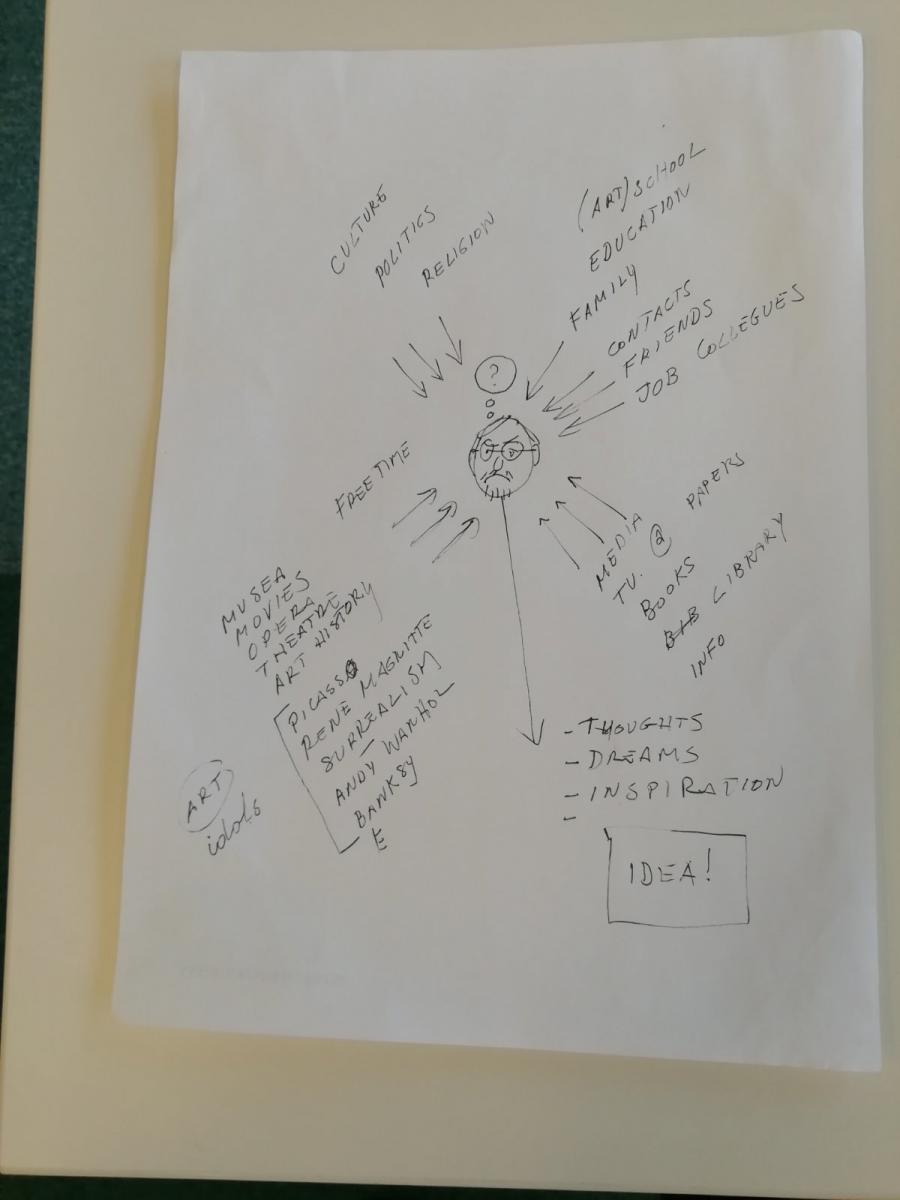 CULTURE
POLITICS
RELIGION
(ART) SCHOOL
EDUCATION
FAMILY
CONTACTS
FRIENDS
JOB COLLEGUES
?
FREE TIME
MUSEA
MOVIES
OPERA
THEATRE
ART HISTORY
PICASSO
RENE MAGRITTE
SURREALISM
ANDY WARHOL
BANKSY
E
ART
idols
MEDIA
TV. @ PAPERS
BOOKS
BIB LIBRARY
INFO
- THOUGHTS
- DREAMS
- INSPIRATION
-
IDEA!